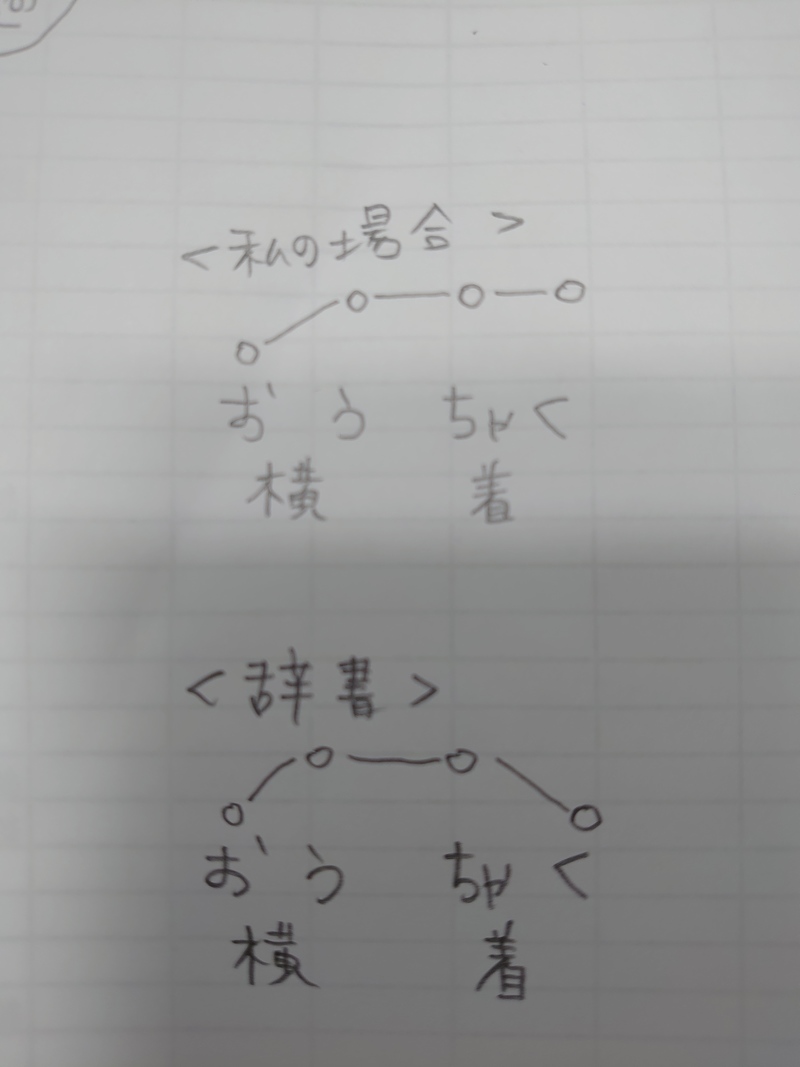 <私の場合>
おうちゃく
横着
<辞書>
おうちゃく
横着